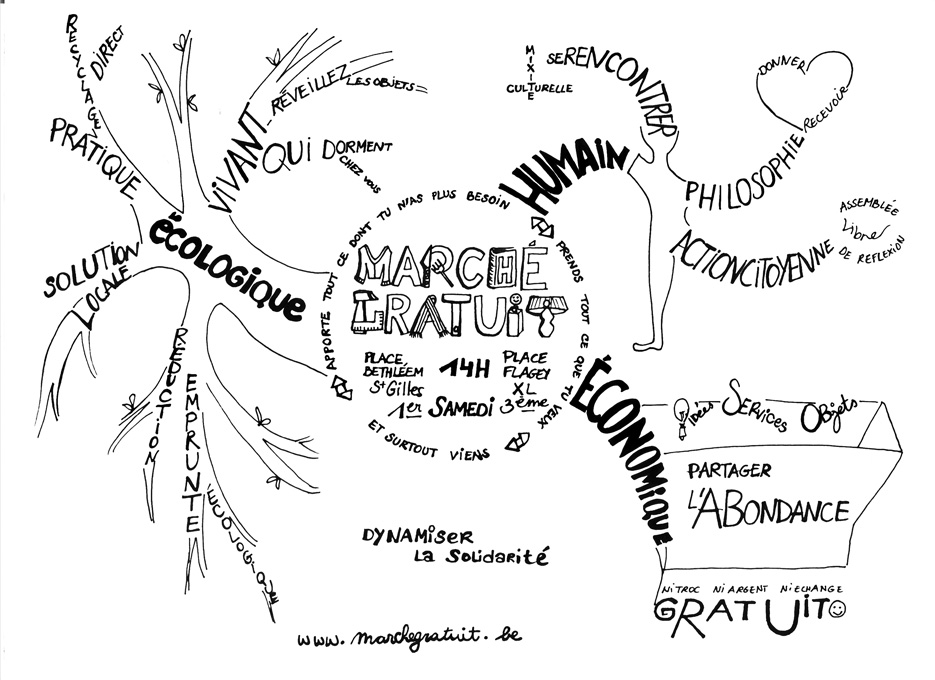 RECYCLAGE
DIRECT
PRATIQUE
SOLUTION
LOCALE
écologique
VIVANT
RÉVEILLEZ LES OBJETS
QUI DORMENT
CHEZ VOUS
RÉDUCTION
EMPRUNTE
ÉCOLOGIQUE
APPORTE TOUT CE DONT TU N'AS PLUS BESOIN
PRENDS TOUT CE QUE TU VEUX
ET SURTOUT VIENS
MARCHÉ
GRATUIT
PLACE
BETHLÉEM
St Gilles
1er
14H
SAMEDI
PLACE
FLAGEY
XL
3ème
HUMAIN
MIXITE
CULTURELLE
SE RENCONTRER
PHILOSOPHIE
DONNER
RECEVOIR
ACTION CITOYENNE
ASSEMBLÉE
Libre
DE REFLEXION
ÉCONOMIQUE
Idées Services Objets
PARTAGER
L'ABONDANCE
NI TROC NI ARGENT NI ECHANGE
GRATUIT
DYNAMISER
LA SOLIDARITÉ
www.marchegratuit.be